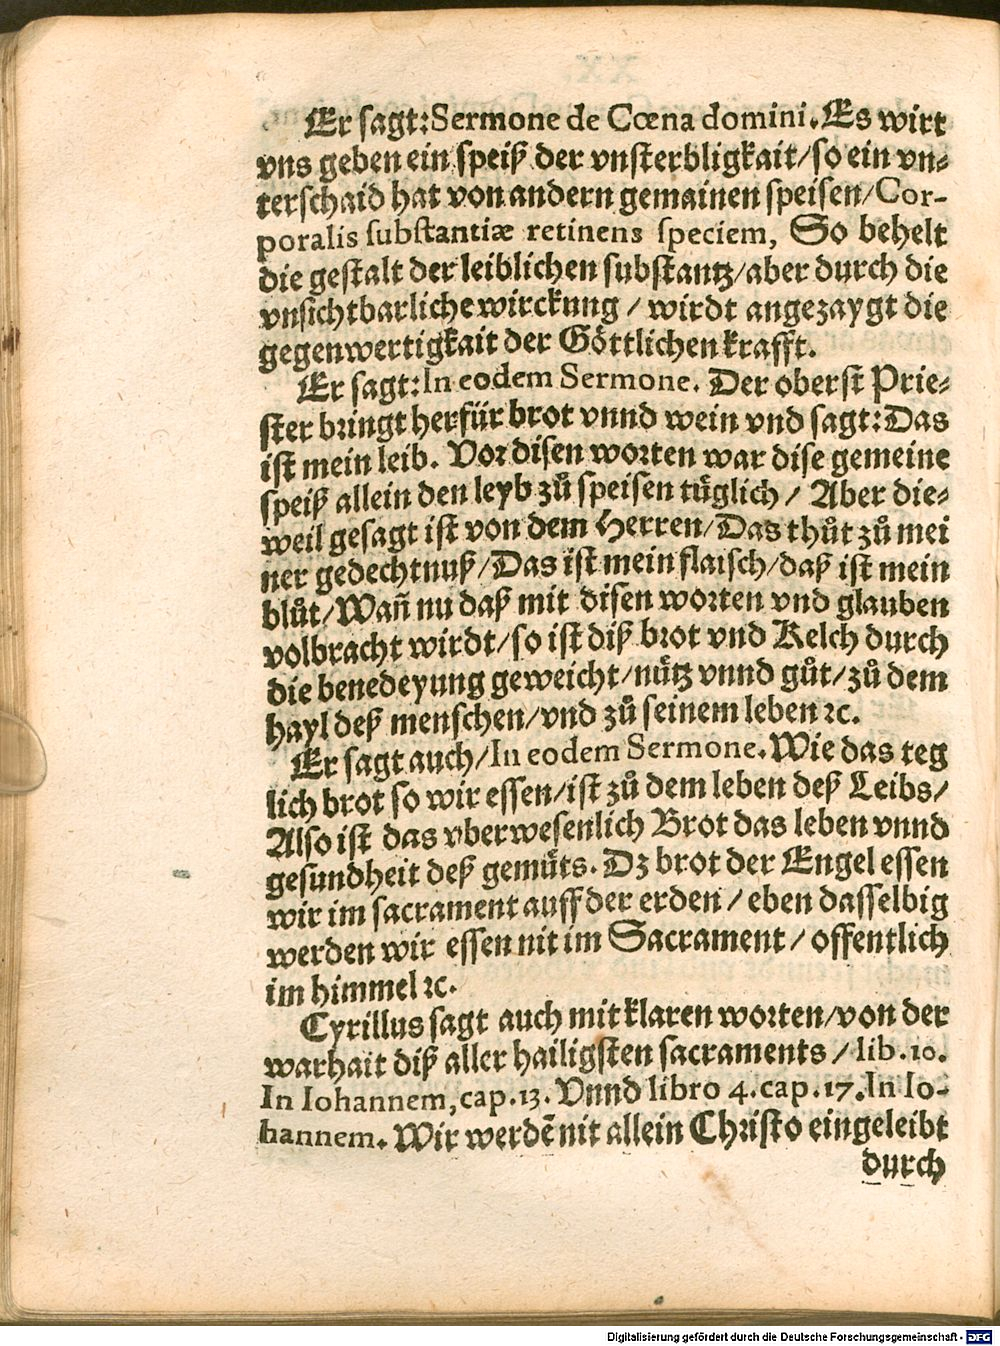 Er sagt: Sermone de Cœna domini. Es wirt
vns geben ein speiß der vnsterbligkait/ so ein vn⸗
terschaid hat von andern gemainen speisen/ Cor-
poralis substantiæ retinens speciem, So behelt
die gestalt der leiblichen substantz/ aber durch die
vnsichtbarliche wirckung / wirdt angezaygt die
gegenwertigkait der Göttlichen krafft.
Er sagt: In eodem Sermone. Der oberst Prie⸗
ster bringt herfür brot vnnd wein vnd sagt: Das
ist mein leib. Vor disen worten war dise gemeine
speiß allein den leyb zů speisen tüglich / Aber die⸗
weil gesagt ist von dem Herren/ Das thůt zů mei
ner gedechtnuß/ Das ist mein flaisch/ daß ist mein
blůt/ Wañ nu daß mit disen worten vnd glauben
volbracht wirdt/ so ist diß brot vnd Kelch durch
die benedeyung geweicht/ nütz vnnd gůt/ zů dem
hayl deß menschen/ vnd zů seinem leben ꝛc.
Er sagt auch/ In eodem Sermone. Wie das teg
lich brot so wir essen/ ist zů dem leben deß Leibs/
Also ist das vberwesenlich Brot das leben vnnd
gesundheit deß gemüts. Dz brot der Engel essen
wir im sacrament auff der erden / eben dasselbig
werden wir essen nit im Sacrament / offentlich
im himmel ꝛc.
Cyrillus sagt auch mit klaren worten/ von der
warhait diß aller hailigsten sacraments / lib. 10.
In Iohannem, cap. 13. Vnnd libro 4. cap. 17. In Io-
hannem. Wir werdē nit allein Christo eingeleibt
durch
Digitalisierung gefördert durch die Deutsche Forschungsgemeinschaft - DFG